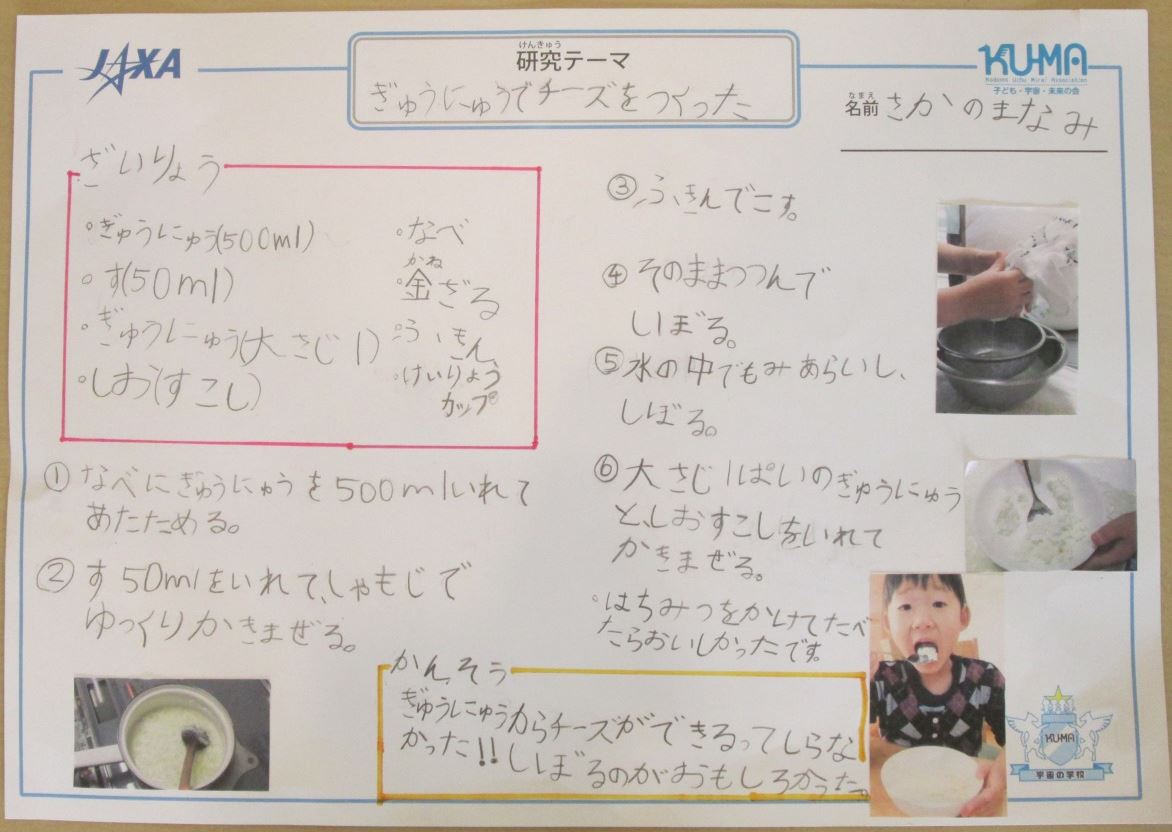 JAXA
けんきゅう
研究テーマ
ぎゅうにゅうでチーズをつくった
KU-MA
Kodomo Uchu Mirai Association
子ども・宇宙・未来の会
なまえ
名前 さかのまなみ
ざいりょう
・ぎゅうにゅう(500ml)
・す(50ml)
・ぎゅうにゅう(大さじ1)
・しお(すこし)
・なべ
かね
・金ざる
・ふきん
・けいりょう
カップ
① なべにぎゅうにゅうを500mlいれて
あたためる。
② す50mlをいれて、しゃもじで
ゆっくりかきまぜる。
③ ふきんでこす。
④ そのままつつんで
しぼる。
⑤ 水の中でもみあらいし、
しぼる。
⑥ 大さじ1ぱいのぎゅうにゅう
と、しおすこしをいれて
かきまぜる。
・はちみつをかけてたべ
たらおいしかったです。
かんそう
ぎゅうにゅうからチーズができるってしらな
かった!!しぼるのがおもしろかった。
KU-MA
宇宙の学校